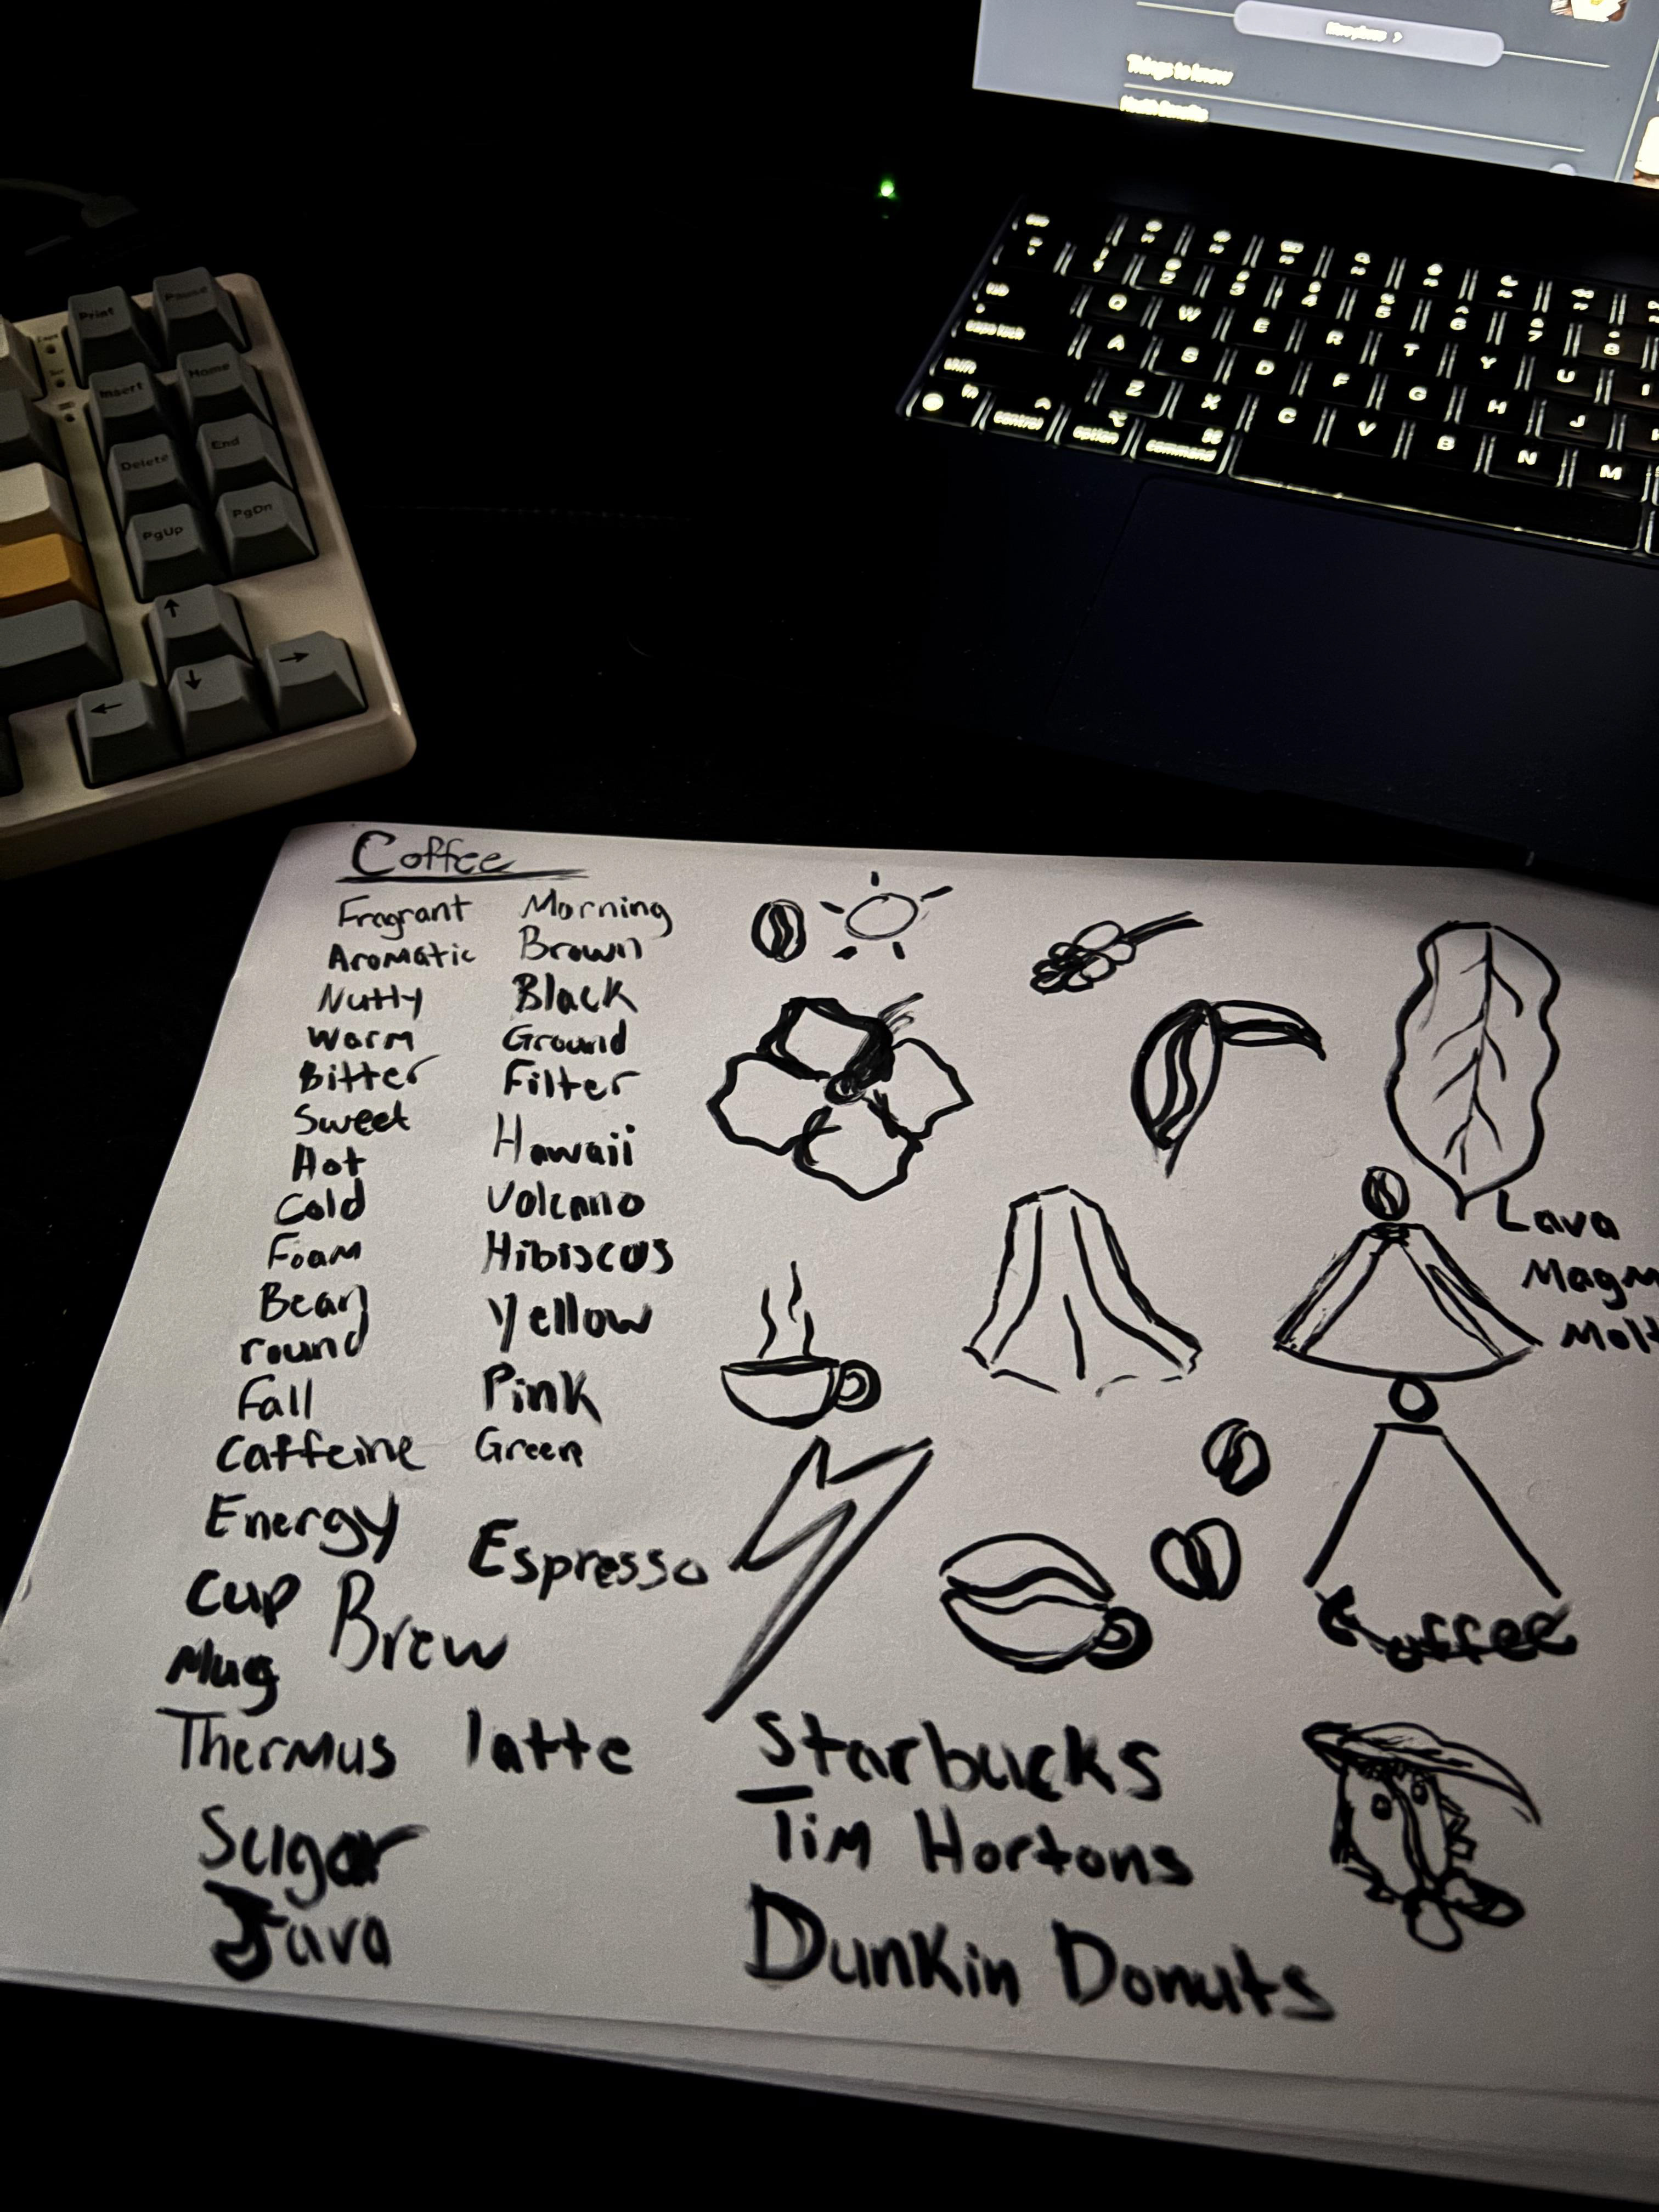 More photos
Things to know
Health Benefits
esc
tab
caps lock
shift
fn
control
option
command
1 2 3 4 5 6 7 8
Q W E R T Y U I
A S D F G H J
Z X C V B N M
Print Pause
Insert Home
Delete End
PgUp PgDn
Coffee
Fragrant
Aromatic
Nutty
Warm
Bitter
Sweet
Hot
Cold
Foam
Bean
round
Fall
Caffeine
Energy
Cup
Mug
Brew
Thermus
Sugar
Java
Morning
Brown
Black
Ground
Filter
Hawaii
Volcano
Hibiscus
Yellow
Pink
Green
Espresso
latte
Lava
Magm
Molt
Coffee
Starbucks
Tim Hortons
Dunkin Donuts